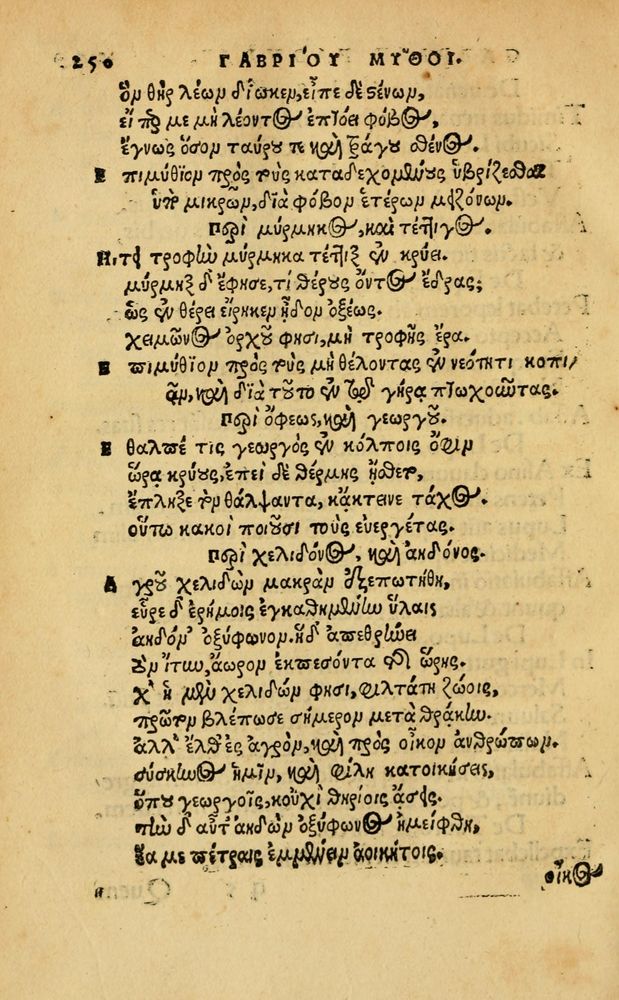 250 ΓΑΒΡΙΟΥ ΜΥΘΟΙ.
ὃν θὴρ λέων δίωκεν, εἶπε δὲ στένων,
εἴπερ με μὴ λέοντος ἐπτόει φόβος,
ἔγνως ὅσον ταύρου τε καὶ τράγου σθένος.
Ἐπιμύθιον πρὸς τοὺς καταδεχομένους ὑβρίζεσθαι
ὑπὸ μικρῶν, διὰ φόβον ἑτέρων μειζόνων.
Περὶ μύρμηκος, καὶ τέττιγος.
ΗΙτει τροφὴν μύρμηκα τέττιξ ἐν κρύει.
μύρμηξ δ' ἔφησε, τί θέρους ὄντος ἔδρας;
ὡς ἐν θέρει εἴρηκεν ᾖδον ὀξέως.
χειμῶνος ὀρχοῦ φησι, μὴ τροφῆς ἔρα.
Ἐπιμύθιον πρὸς τοὺς μὴ θέλοντας ἐν νεότητι κοπι
ᾶν, καὶ διὰ τοῦτο ἐν τῷ γήρᾳ πτωχοῦντας.
Περὶ ὄφεως, καὶ γεωργοῦ.
Ἔθαλπέ τις γεωργὸς ἐν κόλποις ὄφιν
ὥρᾳ κρύους, ἐπεὶ δὲ θέρμης ᾔσθετο,
ἔπληξε τὸν θάλψαντα, κἄκτεινε τάχος.
οὕτω κακοὶ ποιοῦσι τοὺς εὐεργέτας.
Περὶ χελιδόνος, καὶ ἀηδόνος.
Ἀγροῦ χελιδὼν μακρὰν ἐξεπωτήθη,
εὗρε δ' ἐρήμοις ἐγκαθημένην ὕλαις
ἀηδόν' ὀξύφωνον. ἡ δ' ἀπεθρήνει
τὸν ἴτυν, ἄωρον ἐκπεσόντα τῆς ὥρης.
χ' ἡ μὲν χελιδών φησι, φιλτάτη ζώοις,
πρῶτον βλέπω σε σήμερον μετὰ θρᾴκην.
ἀλλ' ἔλθ' ἐς ἀγρὸν, καὶ πρὸς οἶκον ἀνθρώπων.
σύσκηνος ἡμῖν, καὶ φίλη κατοικήσεις,
ὅπου γεωργοῖς, κοὐχὶ θηρίοις ᾄσεις.
τὴν δ' αὖτ' ἀηδὼν ὀξύφωνος ἠμείφθη,
ἔα με πέτραις ἐμμένειν ἀοικήτοις.
οἶκος